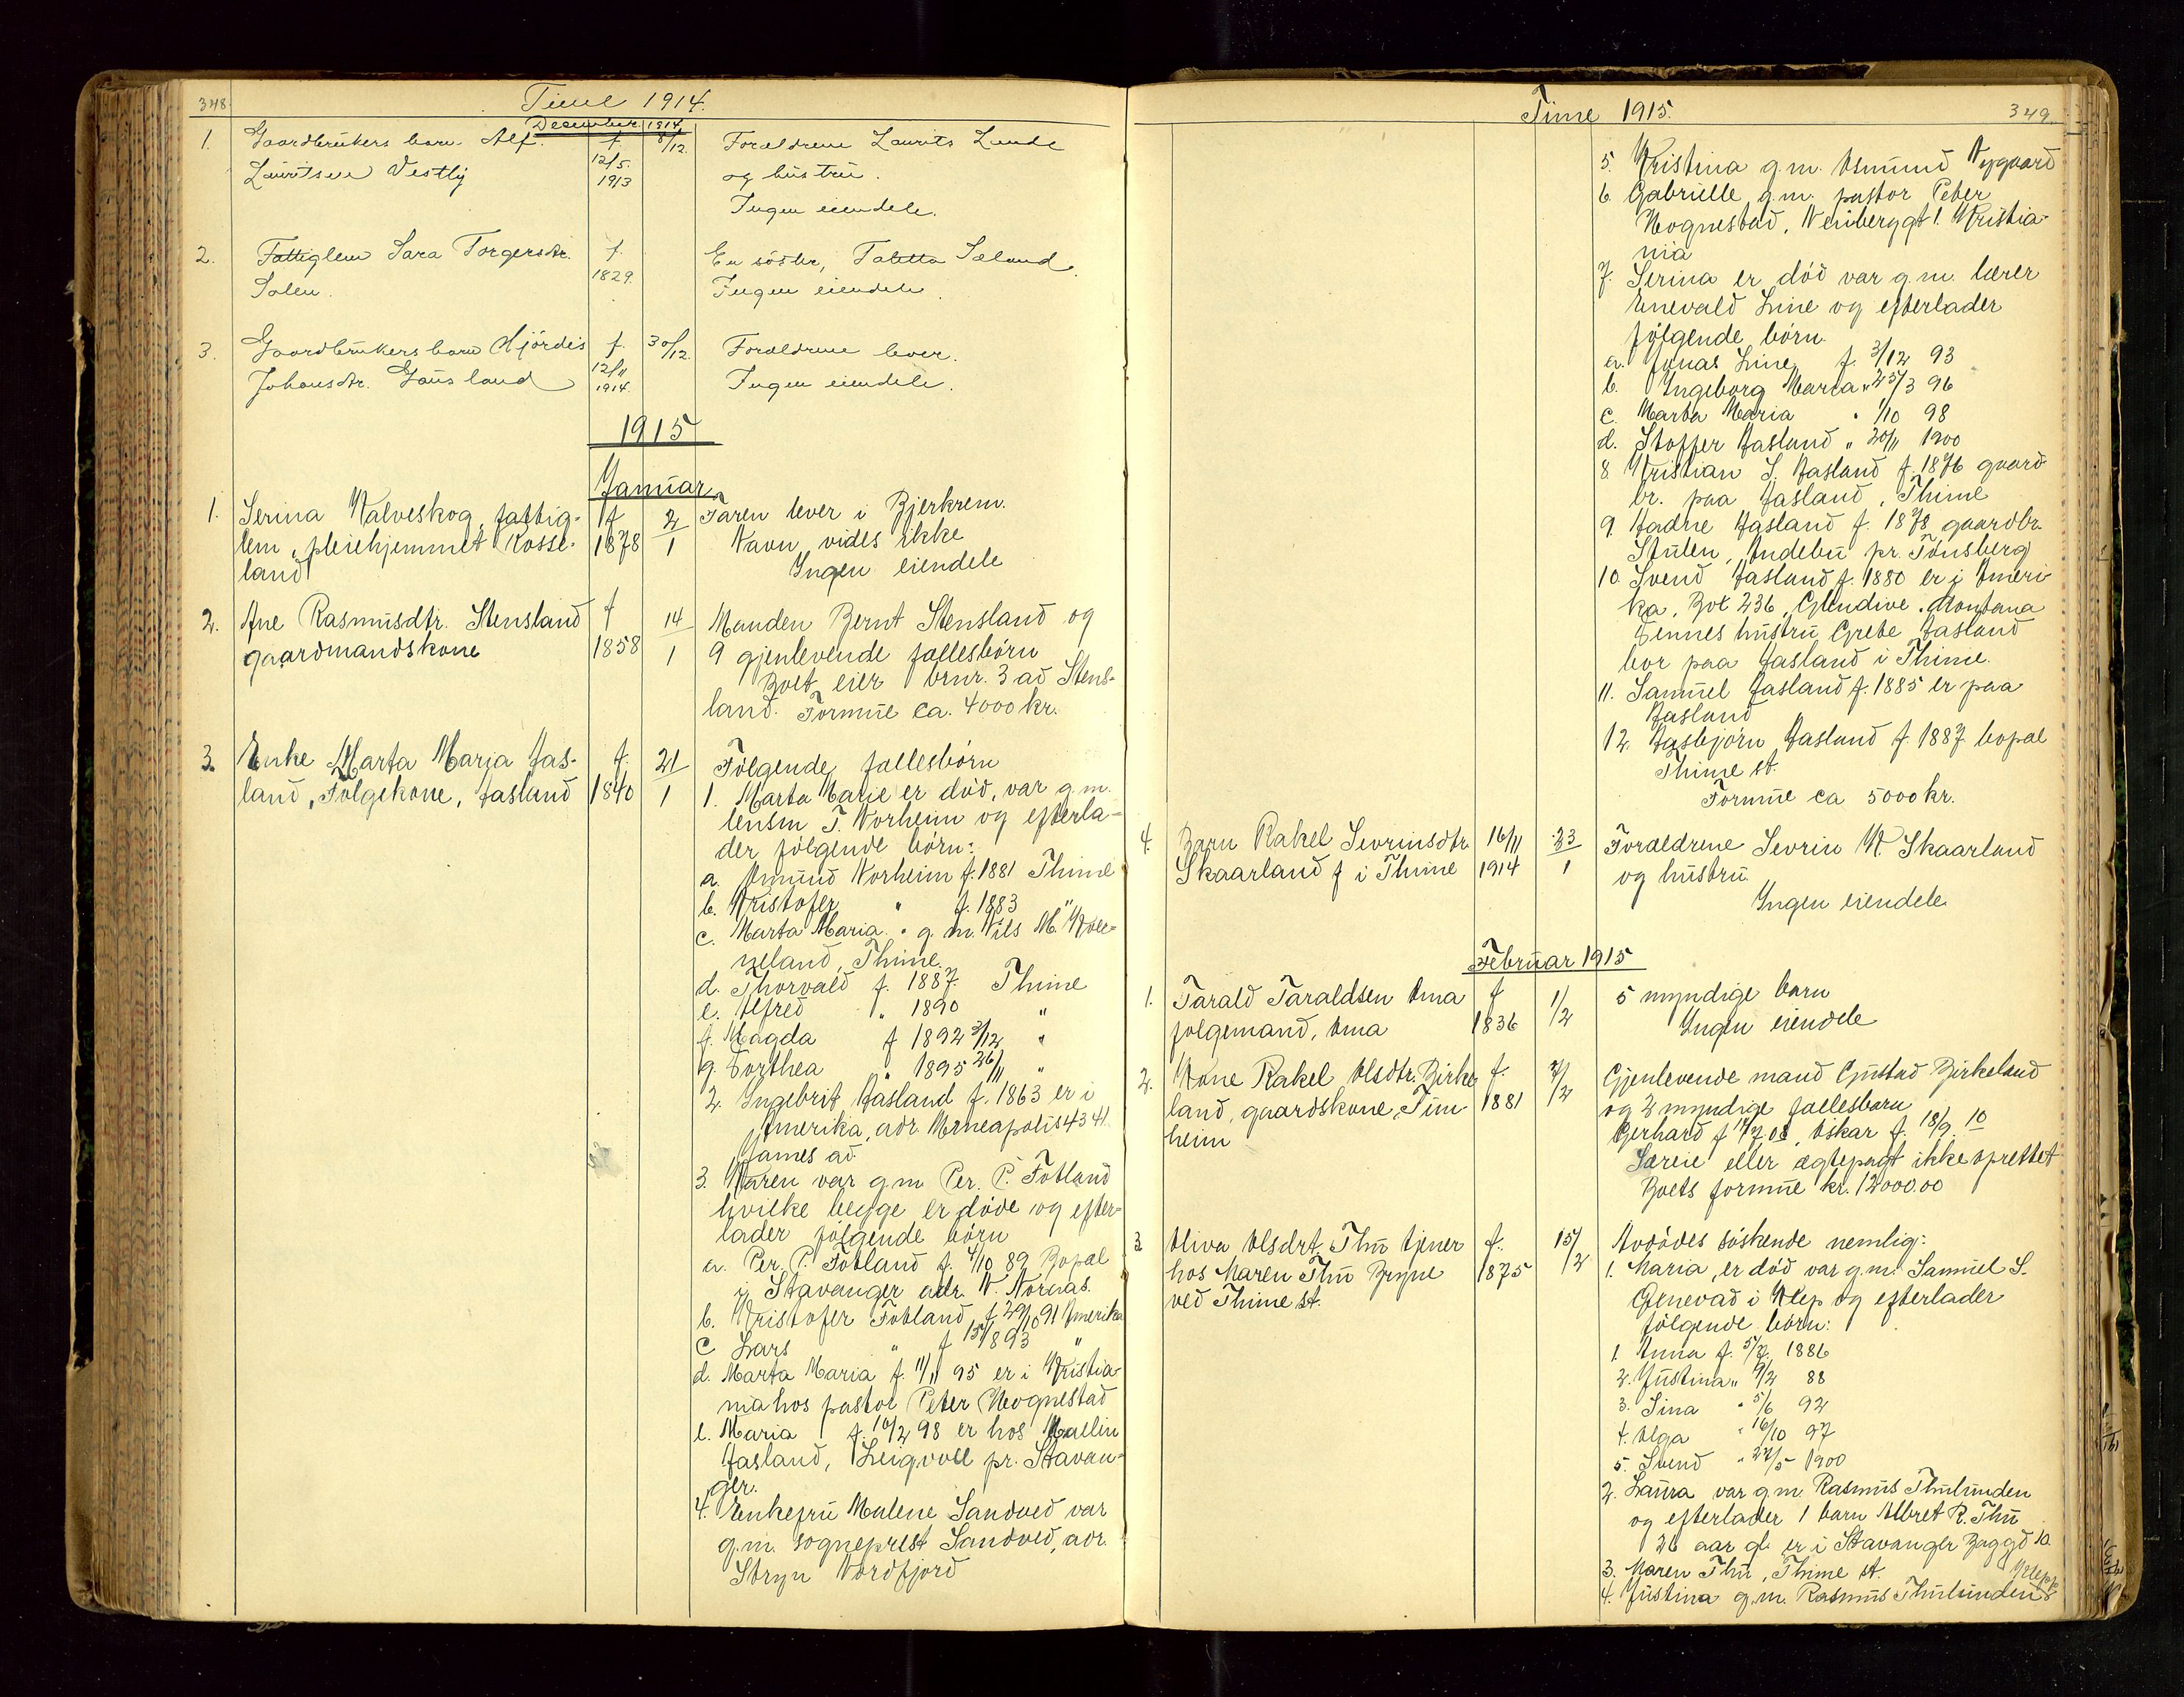 348.
Time 1914.
December 1914.
1. Gaardbrukers barn Alf f. 8/12. Forældrene Laurits Lende
Lauritsen Vestly 12/5. 1913 og hustru.
Ingen eiendele.
2. Fattiglem Sara Torgersdtr. f. En søster, Taletta Sæland.
Solen. 1829. Ingen eiendele.
3. Gaardbrukers barn Hjørdis f. 30/12. Forældrene lever.
Johansdtr. Gausland 12/11 1914. Ingen eiendele.
1915
Januar
1. Serina Kalveskog, fattig- f 2/1 Faren lever i Bjerkrem.
lem, pleiehjemmet Rosse- 1878 Navn vides ikke
land Ingen eiendele
2. Ane Rasmusdtr. Stensland f 14/1 Manden Bernt Stensland og
gaardmandskone 1858 9 gjenlevende fællesbørn
Boet eier brnr. 3 ad Stens-
land. Formue ca. 4000 kr.
3. Enke Marta Maria Aas- f. 21/1 Følgende fællesbørn
land, Følgekone, Aasland 1840 1. Marta Marie er død, var g.m.
lensm T. Norheim og efterla-
der følgende børn:
a. Amund Norheim f. 1881 Thime
b. Kristofer " f. 1883 "
c. Marta Maria " g.m. Nils M. Kver-
neland, Thime.
d. Thorvald f. 1887. Thime
e. Alfred " 1890 "
f. Magda f 1892 3/12 "
g. Dorthea " 1895 26/11 "
2. Ingebrit Aasland f. 1863 er i
Amerika, adr. Mineapolis 4341
James ad
3. Karen var g.m. Per. P. Fotland
hvilke begge er døde og efter-
lader følgende børn
a. Per. P. Fotland f. 4/10 89 Bopæl
i Stavanger adr. N. Nornas.
b. Kristofer Fotland f 29/10 91 Amerika
c Lars " f 15/8 93 "
d. Marta Maria f. 11/11 95 er i Kristia-
nia hos pastor Peter Hognestad
e. Maria f. 10/2 98 er hos Mallin
Aasland, Leigvoll pr. Stavan-
ger.
4. Enkefru Malene Sandved var
g.m. sogneprest Sandved, adr.
Stryn Nordfjord
Time 1915.
349.
5. Kristina g.m. Osmund Nygaard
6. Gabrielle g.m. pastor Peter
Hognestad, Neuberggt 1. Kristia-
nia
7. Serina er død var g.m. lærer
Enevald Line og efterlader
følgende børn.
a. Jonas Line f. 3/12 93
b. Ingeborg Maria " 25/3 96
c. Marta Maria " 1/10 98
d. Stoffer Aasland " 20/11 1900
8. Kristian S. Aasland f. 1876 gaard-
br. paa Aasland, Thime
9. Aadne Aasland f. 1878 gaardbr.
Stulen, Andebu pr. Tønsberg
10. Svend Aasland f. 1880 er i Ameri-
ka, Box 236, Glendive. Montana
Dennes hustru Grete Aasland
bor paa Aasland i Thime.
11. Samuel Aasland f. 1885 er paa
Aasland
12. Aasbjørn Aasland f. 1887 bopæl
Thime st.
Formue ca 5000 kr.
4. Barn Rakel Sevrinsdtr 16/11 23/1 Forældrene Sevrin K. Skaarland
Skaarland f i Thime 1914 og hustru
Ingen eiendele
Februar 1915
1. Tarald Taraldsen Oma f 1/2 5 myndige barn
følgemand, Oma 1836 Ingen eiendele
2. Kone Rakel Olsdtr. Birke- f. 2/2 Gjenlevende mand Gustad Birkeland
land, gaardskone, Tun- 1881 og 2 myndige fællesbarn
heim Gerhard f 17/7.08, Oskar f. 18/9. 10
Særeie eller ægtepagt ikke oprettet
Boets formue kr. 12000.00
3 Oliva Olsdrt. Thu tjener f. 15/2 Avdødes søskende nemlig:
hos Maren Thu Bryne 1875 1. Maria, er død var g.m. Samuel S.
ved Thime st. Grnevad i Klep og efterlader
følgende børn:
1. Anna f. 5/7. 1886
2. Justina " 9/2 88
3. Sina " 5/6 92
4. Olga " 16/10 97
5. Svend " 22/5 1900
2. Laura var g.m. Rasmus Thulunden
og efterlader 1 barn Albret R. Thu
26 aar gl. er i Stavanger Baggd 10.
3. Maren Thu, Thime st.
4. Justina g.m. Rasmus Thulunden Klepp